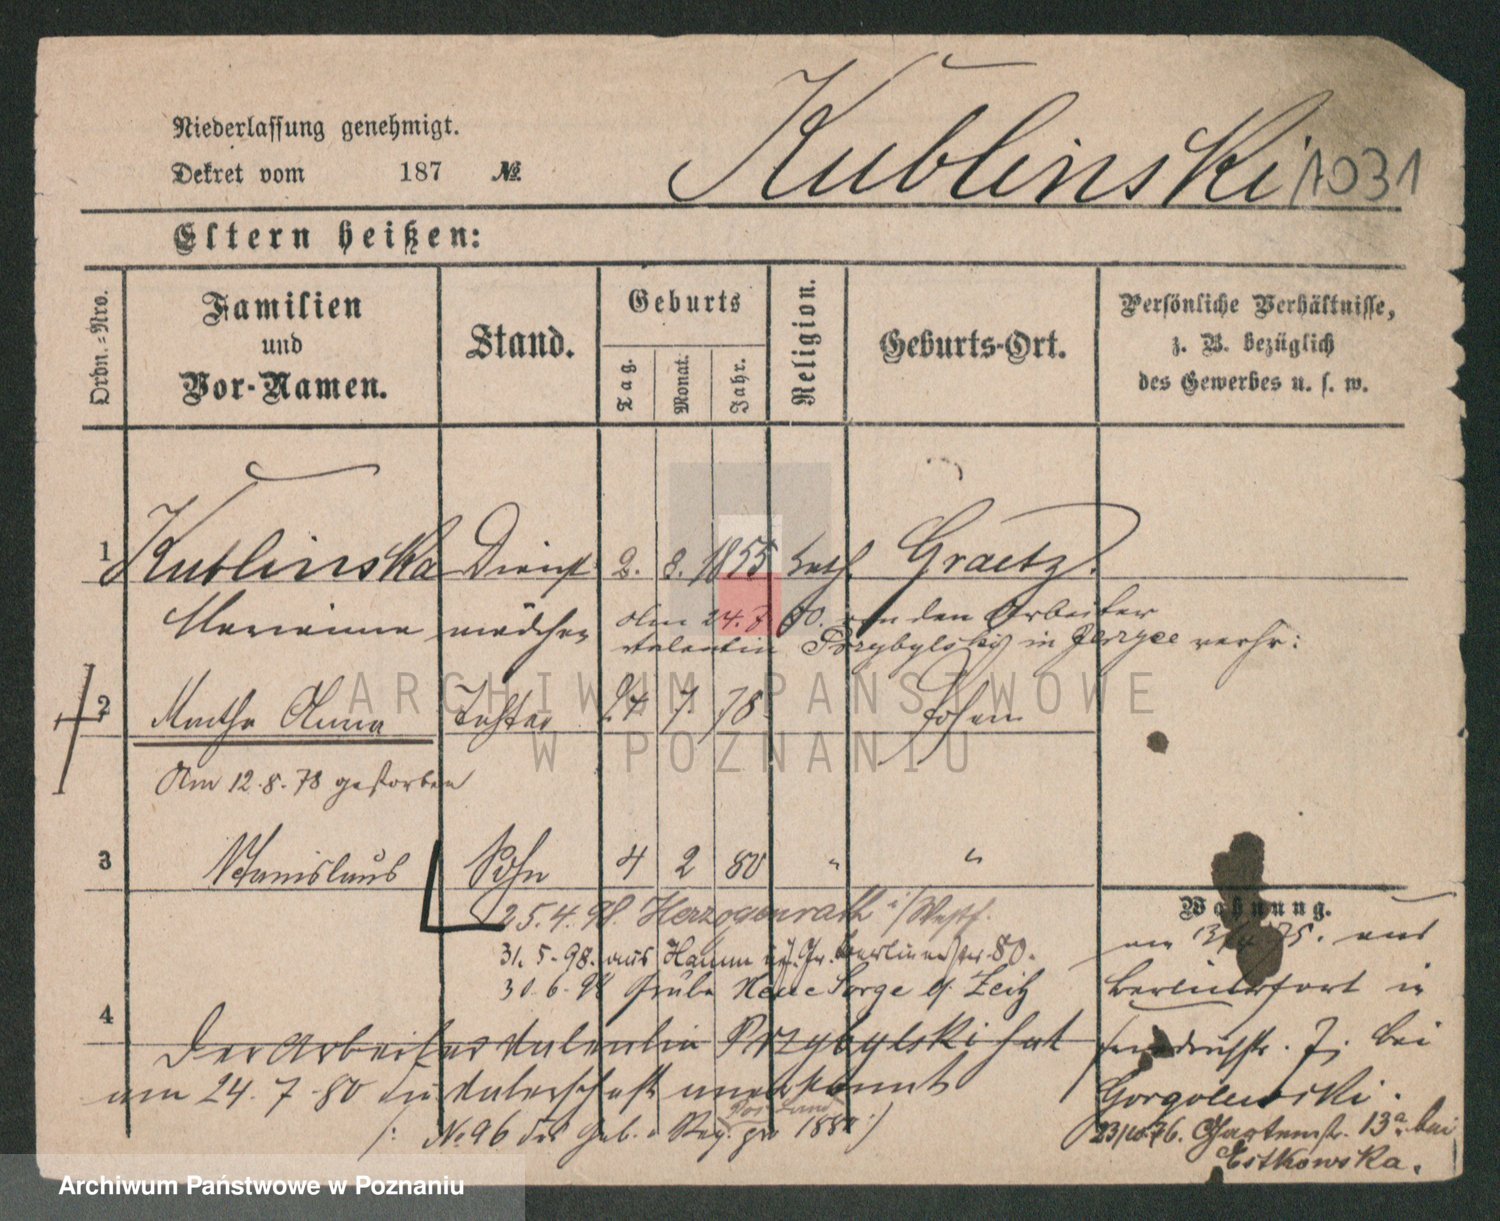 Niederlassung genehmigt.
Dekret vom 187 № Kublinski 1031
Eltern heißen:
Ordn.-Nro. Familien und Vor-Namen. Stand. Geburts Tag. Monat. Jahr. Religion. Geburts-Ort. Persönliche Verhältnisse, z. B. bezüglich des Gewerbes u. s. w.
1 Kublinska Dienst 2. 8. 1855 kath. Graetz.
Marianna mädchen Am 24. 80. den Arbeiter
Valentin Przybylski in Jerzyce verh:
2 Martha Anna Tochter 24 7. 78 Posen
Am 12.8.78 gestorben
3 Stanislaus Sohn 4 2 80 " "
25.4.98. Herzogenrath i/Westf.
31.5.98. aus Hamm Gr. Berlinerstr. 80.
30.6.98 Grube Neue Sorge b/ Zeitz
4 Der Arbeiter Valentin Przybylski hat
am 24. 7. 80 die Vaterschaft anerkannt
/: No 96 des Geb. Reg. pro 1880 :/
Posen
Wohnung.
am 75. aus
Berlinerfort in
Friedrichstr. 7. bei
Gorgolewski.
23/10.76. Gartenstr. 13a. bei
Estkowska.
ARCHIWUM PAŃSTWOWE
W POZNANIU
Archiwum Państwowe w Poznaniu